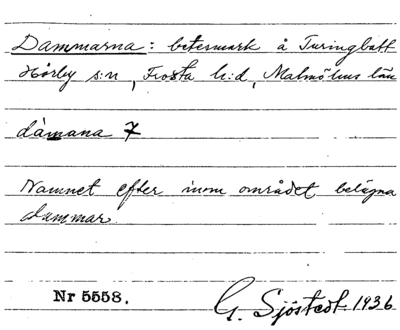 Dammarna: betesmark å Turingbatt
Hörby s:n, Frosta h:d, Malmöhus län
dàmana 7
Namnet efter inom området belägna
dammar.
Nr 5558.
G. Sjöstedt 1936